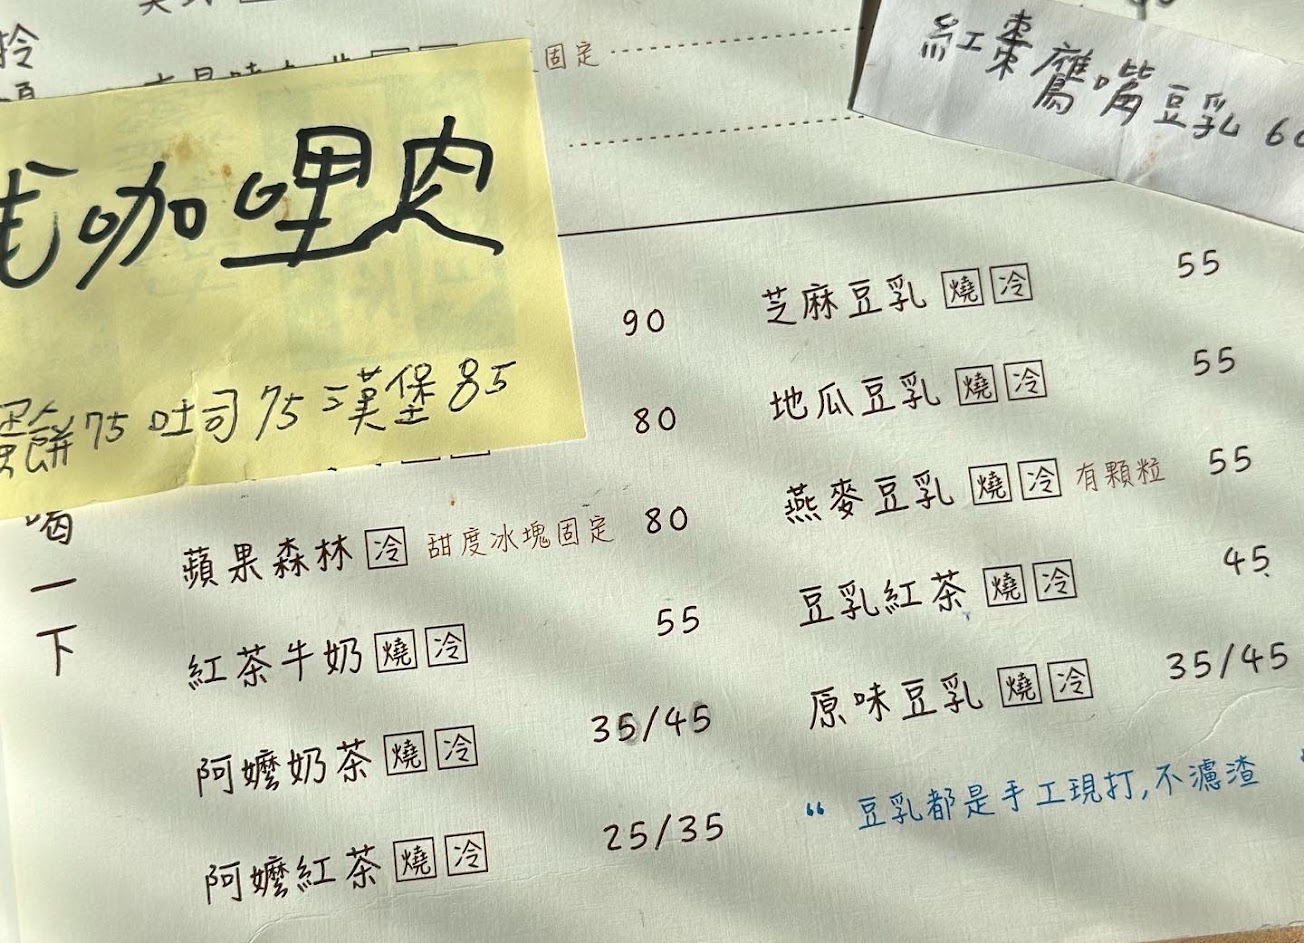 拎
固定
紅棗鷹嘴豆乳
咖哩肉
蛋餅75 吐司75 漢堡85
喝一下
90
80
蘋果森林 冷 甜度冰塊固定 80
紅茶牛奶 燒 冷 55
阿嬤奶茶 燒 冷 35/45
阿嬤紅茶 燒 冷 25/35
芝麻豆乳 燒 冷 55
地瓜豆乳 燒 冷 55
燕麥豆乳 燒 冷 有顆粒 55
豆乳紅茶 燒 冷 45
原味豆乳 燒 冷 35/45
“ 豆乳都是手工現打,不濾渣